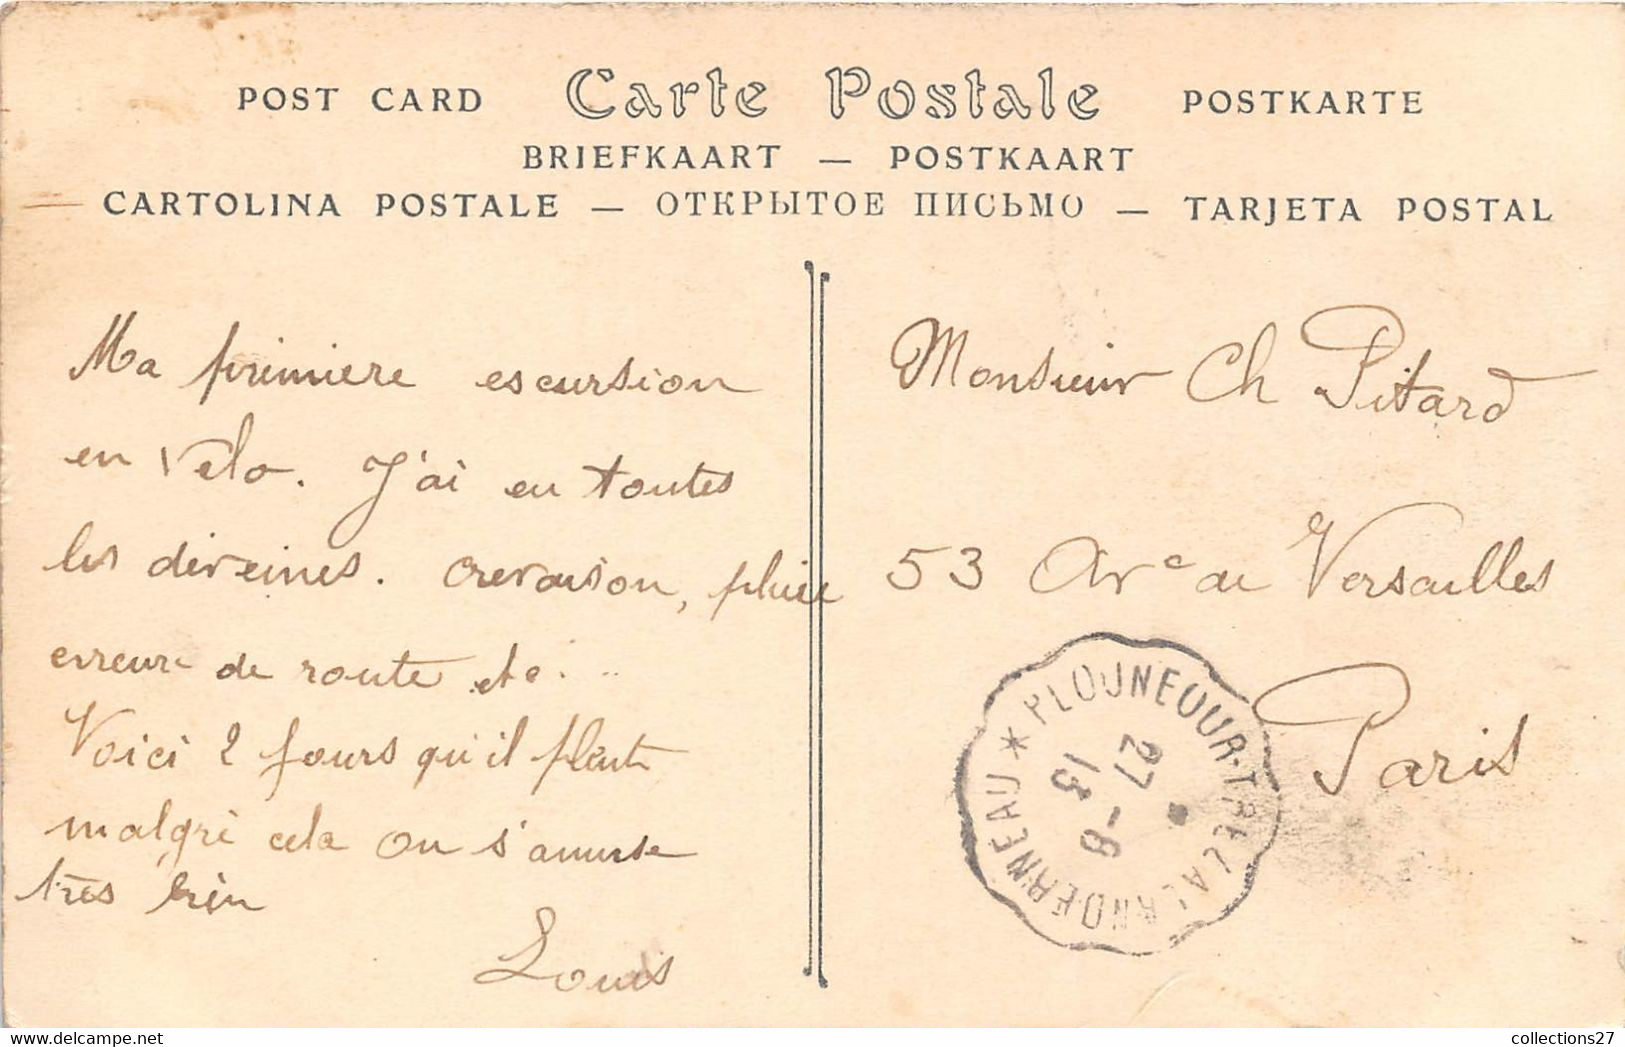 POST CARD Carte Postale POSTKARTE
BRIEFKAART — POSTKAART
CARTOLINA POSTALE — ОТКРЫТОЕ ПИСЬМО — TARJETA POSTAL
Ma primiere escursion
en velo. J'ai eu toutes
les direines. Crevaison, pluie
erreur de route etc.
Voici 2 jours qu'il pleut
malgrè cela on s'amuse
très bien
Louis
Monsieur Ch Pitard
53 Ave de Versailles
Paris
PLOUNEOUR-TREZ A LANDERNEAU *
27 -8
13
collections27